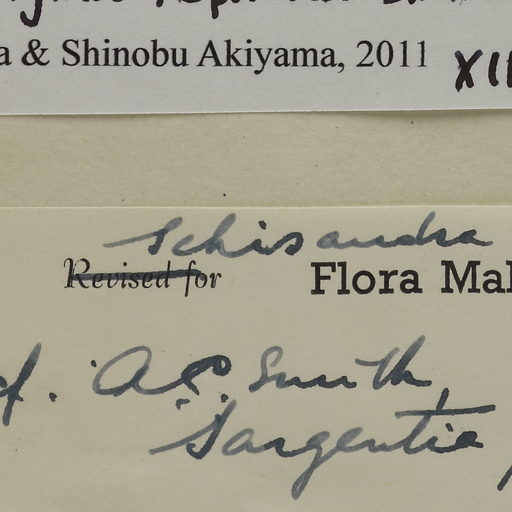 a & Shinobu Akiyama, 2011 XII
Schisandra
Revised for Flora Mal
cf. A.C. Smith,
Sargentia